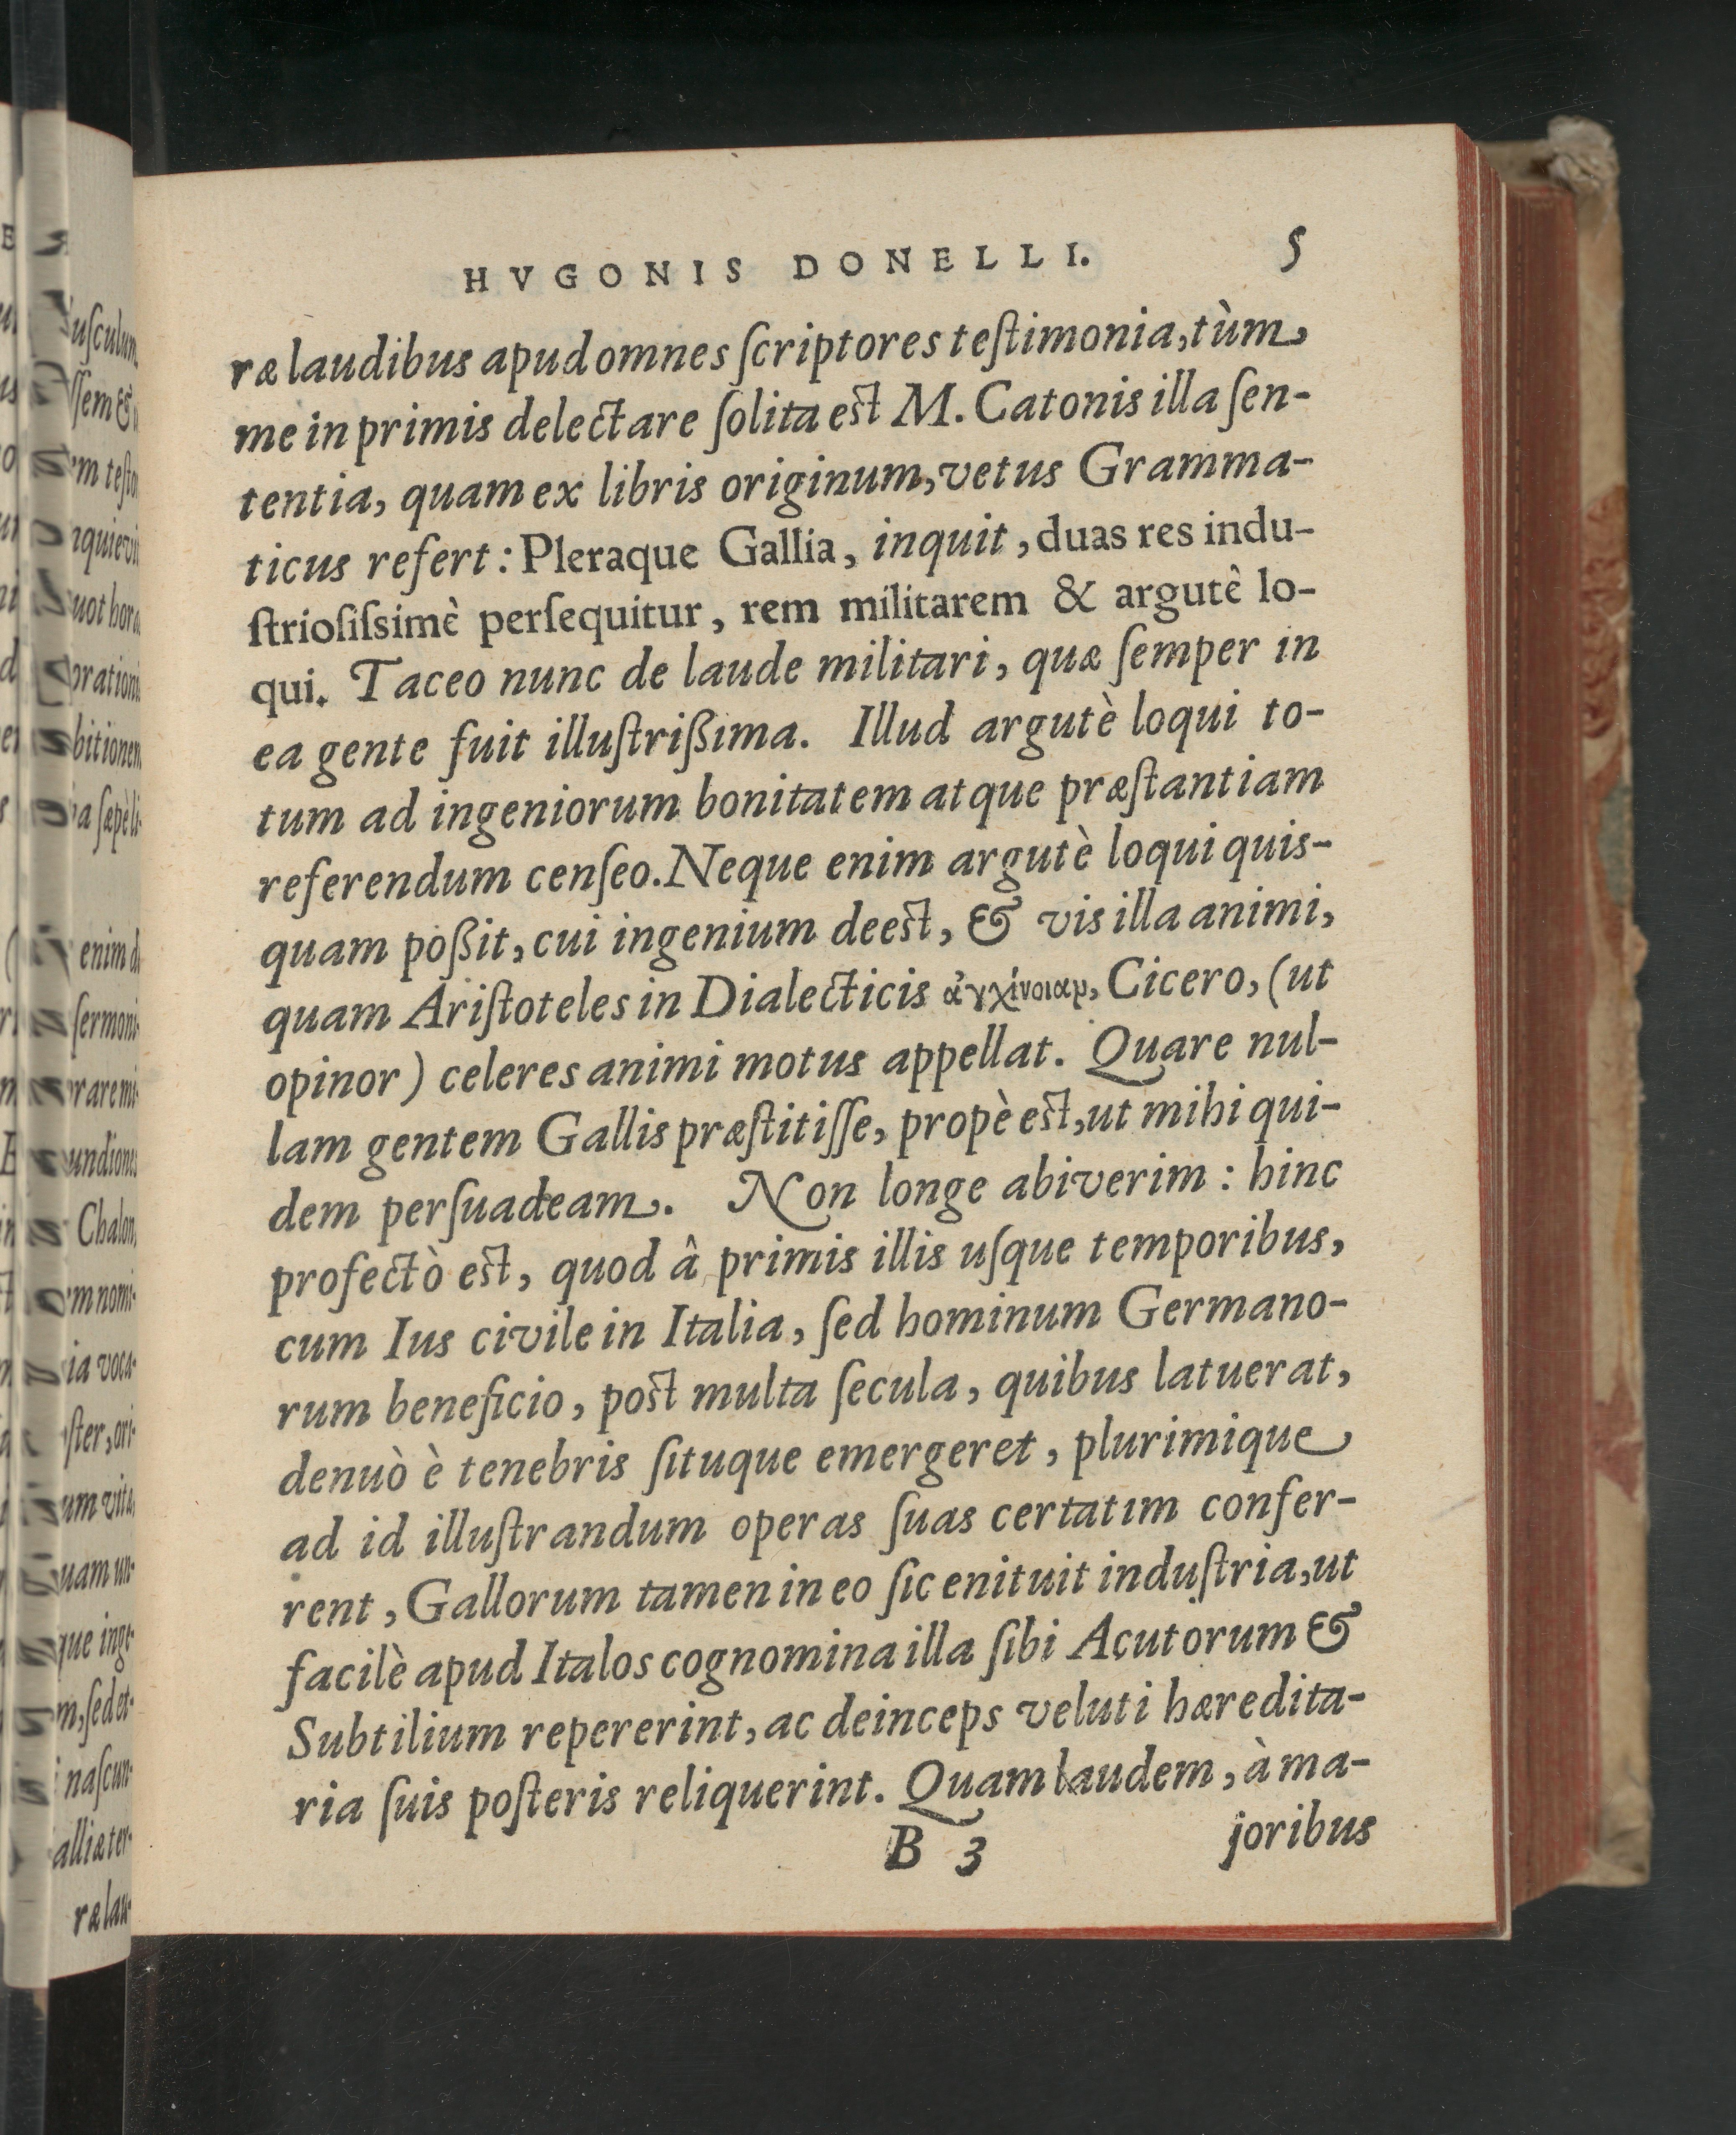 HVGONIS DONELLI. 5
ræ laudibus apud omnes ſcriptores teſtimonia, tùm
me in primis delectare ſolita eſt M. Catonis illa ſen-
tentia, quam ex libris originum, vetus Gramma-
ticus refert: Pleraque Gallia, inquit, duas res indu-
ſtrioſiſsimè perſequitur, rem militarem & argutê lo-
qui. Taceo nunc de laude militari, quæ ſemper in
ea gente fuit illuſtrißima. Illud argutè loqui to-
tum ad ingeniorum bonitatem atque præſtantiam
referendum cenſeo. Neque enim argutè loqui quis-
quam poßit, cui ingenium deeſt, & vis illa animi,
quam Ariſtoteles in Dialecticis ἀγχίνοιαν, Cicero, (ut
opinor) celeres animi motus appellat. Quare nul-
lam gentem Gallis præſtitiſſe, propè eſt, ut mihi qui-
dem perſuadeam. Non longe abiverim: hinc
profectò eſt, quod â primis illis uſque temporibus,
cum Ius civile in Italia, ſed hominum Germano-
rum beneficio, poſt multa ſecula, quibus latuerat,
denuò è tenebris ſituque emergeret, plurimique
ad id illuſtrandum operas ſuas certatim confer-
rent, Gallorum tamen in eo ſic enituit induſtria, ut
facilè apud Italos cognomina illa ſibi Acutorum &
Subtilium repererint, ac deinceps veluti hæredita-
ria ſuis poſteris reliquerint. Quam laudem, à ma-
B 3 joribus
uſculum
ſſem &
m teſta
nquievit
uot hora
oration
bitionem
a ſæpè li-
enim d
ſermoni-
rare mi-
undiones
Chalon,
m nomi-
ia voca-
ſter, ori-
um vita
uam un-
que inge-
m, ſed et-
naſcun-
alliæ ter-
ræ lau-